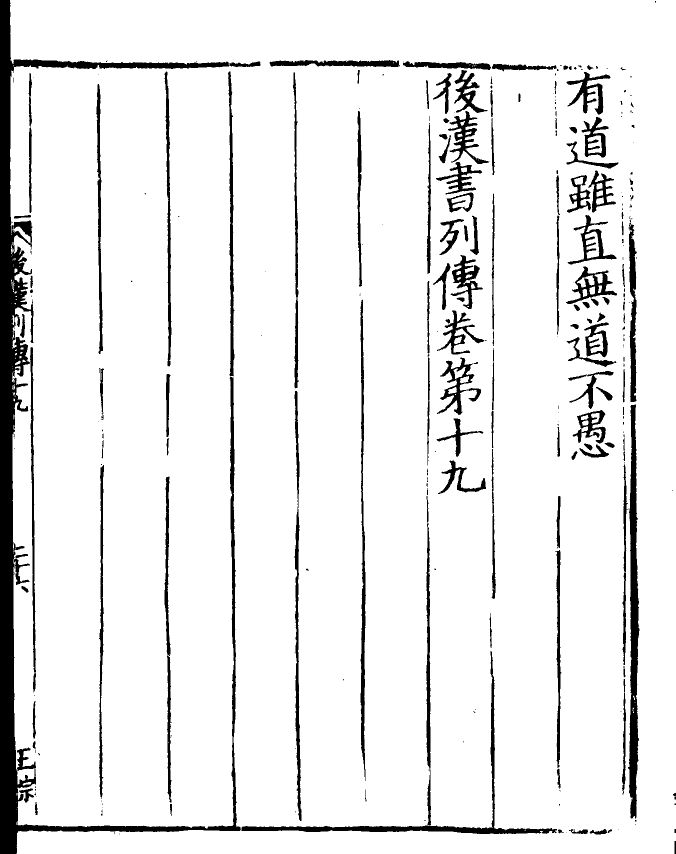 有道雖直無道不愚
後漢書列傳卷第十九
後漢列傳十九
二十六
王宗